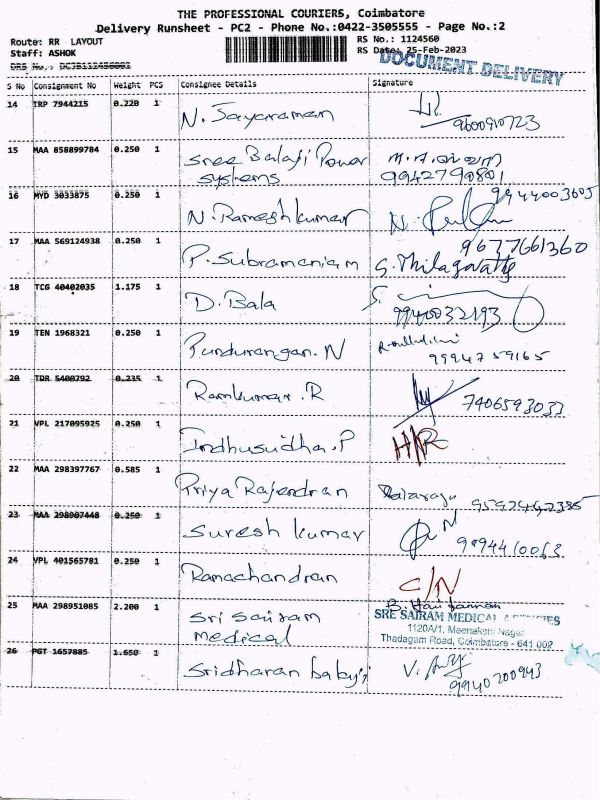 THE PROFESSIONAL COURIERS, Coimbatore
Delivery Runsheet - PC2 - Phone No.:0422-3505555 - Page No.:2
Route: RR LAYOUT RS No.: 1124560
Staff: ASHOK RS Date: 25-Feb-2023
DOCUMENT DELIVERY
S No Consignment No Weight PCS Consignee Details Signature
14 TRP 7944215 0.220 1 N. Jayaraman 9600910723
15 MAA 858899784 0.250 1 Sree Balaji Power
systems 9942790801
16 MYD 3033875 0.250 1 N. Rameshkumar 9944003605
17 MAA 569124938 0.250 1 P. Subramaniam 9677661360
S. Thilagavathy
18 TCG 40402035 1.175 1 D. Bala 9940032193
19 TEN 1968321 0.250 1 Pundurangan. N 99947 59165
20 TDR 5400792 0.235 1 Ramkumar. R 7406593033
21 VPL 217095925 0.250 1 Indhusudha. P
22 MAA 298397767 0.585 1 Priya Rajendran 9597442385
23 MAA 298907448 0.250 1 Suresh kumar
24 VPL 401565781 0.250 1 Ramachandran C/N
25 MAA 298951085 2.200 1 Sri Sairam
medical
SRE SAIRAM MEDICAL AGENCIES
1120A/1, Meenakshi Nagar
Thadagam Road, Coimbatore - 641 002
26 PGT 1657885 1.650 1 Sridharan balaji
9940200943